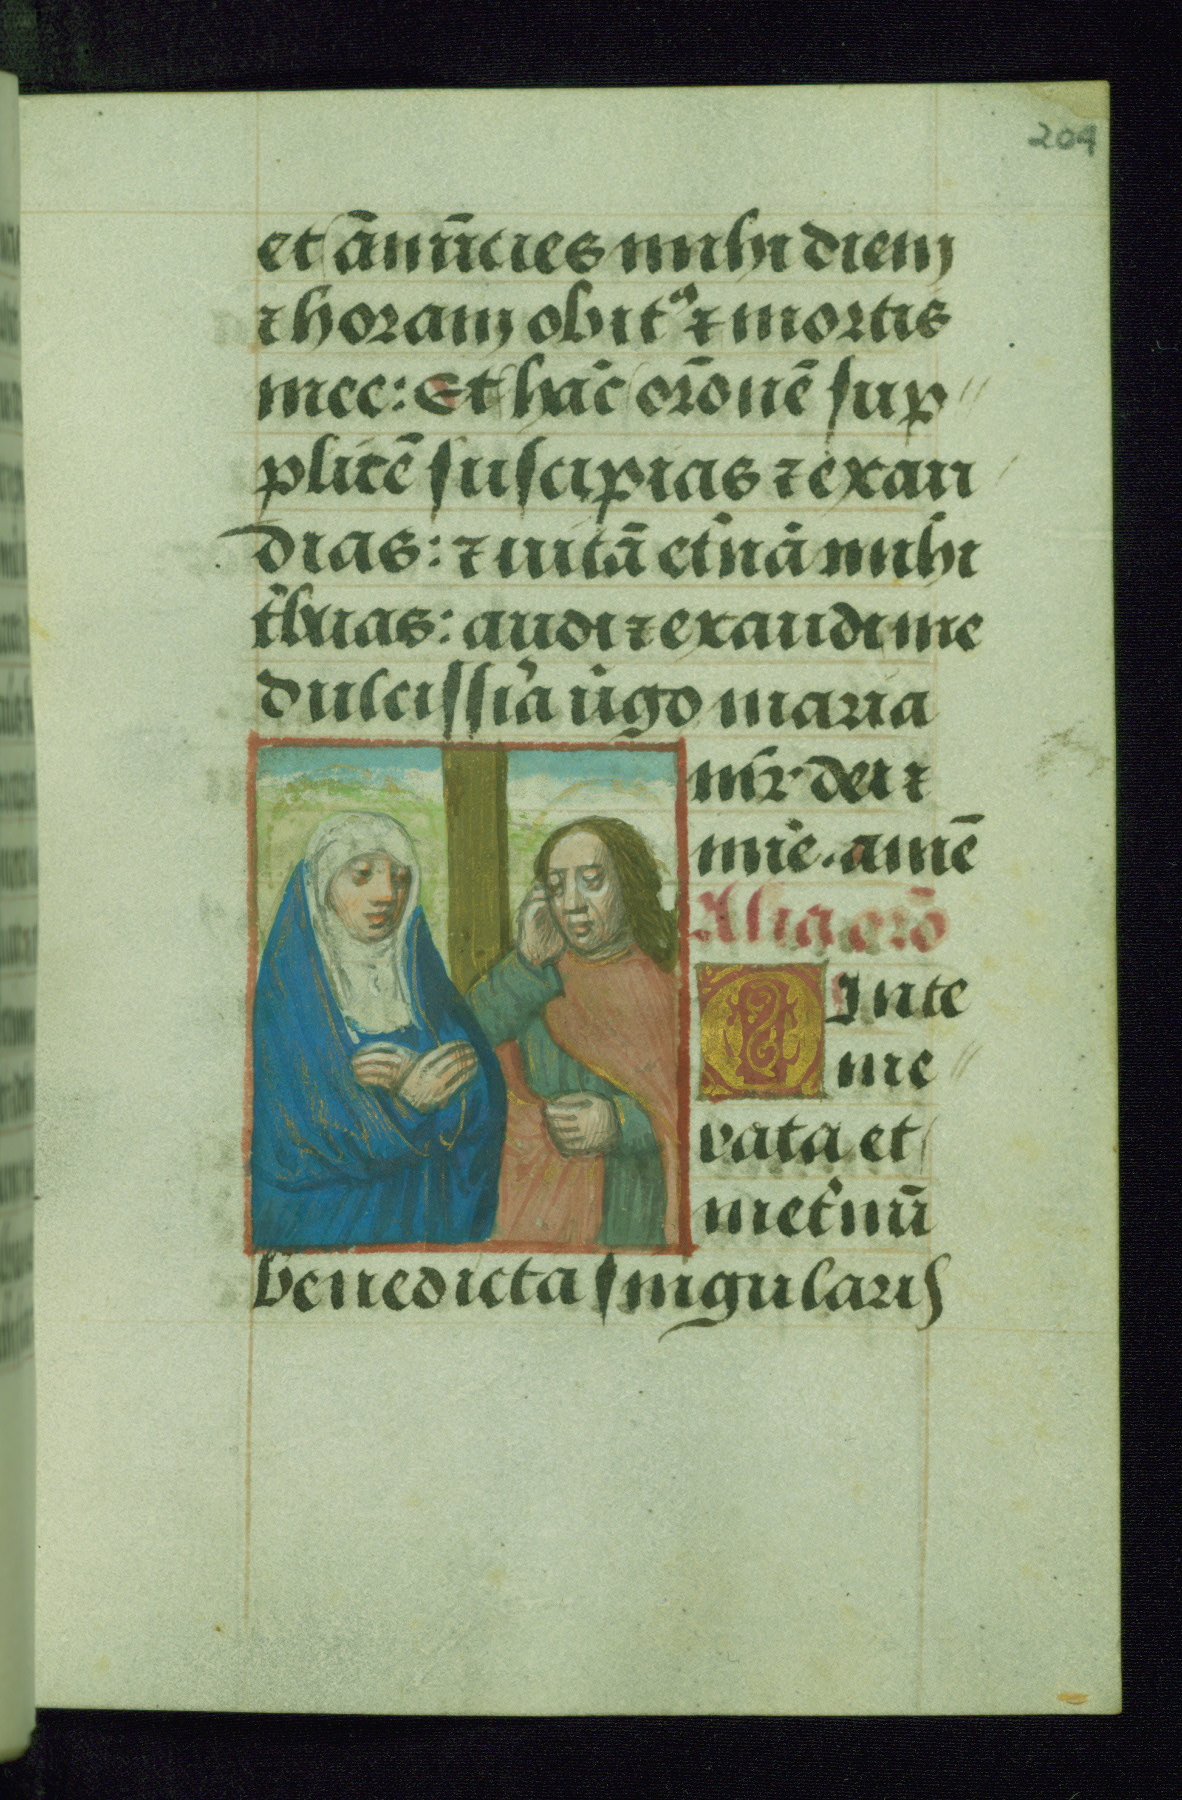 204
et ānūcies michi diem
⁊ horam obitꝰ ⁊ mortis
mee: Et hāc orōnē sup
plicē suscipias ⁊ exau
dias: ⁊ uitā et̾nā michi
t̾buas: audi ⁊ exaudi me
dulcissīa u̾go maria
mr̄ dei ⁊
mīe. amē
Alia orō
O Inte
me
rata et
inet̾nū
benedicta singularis